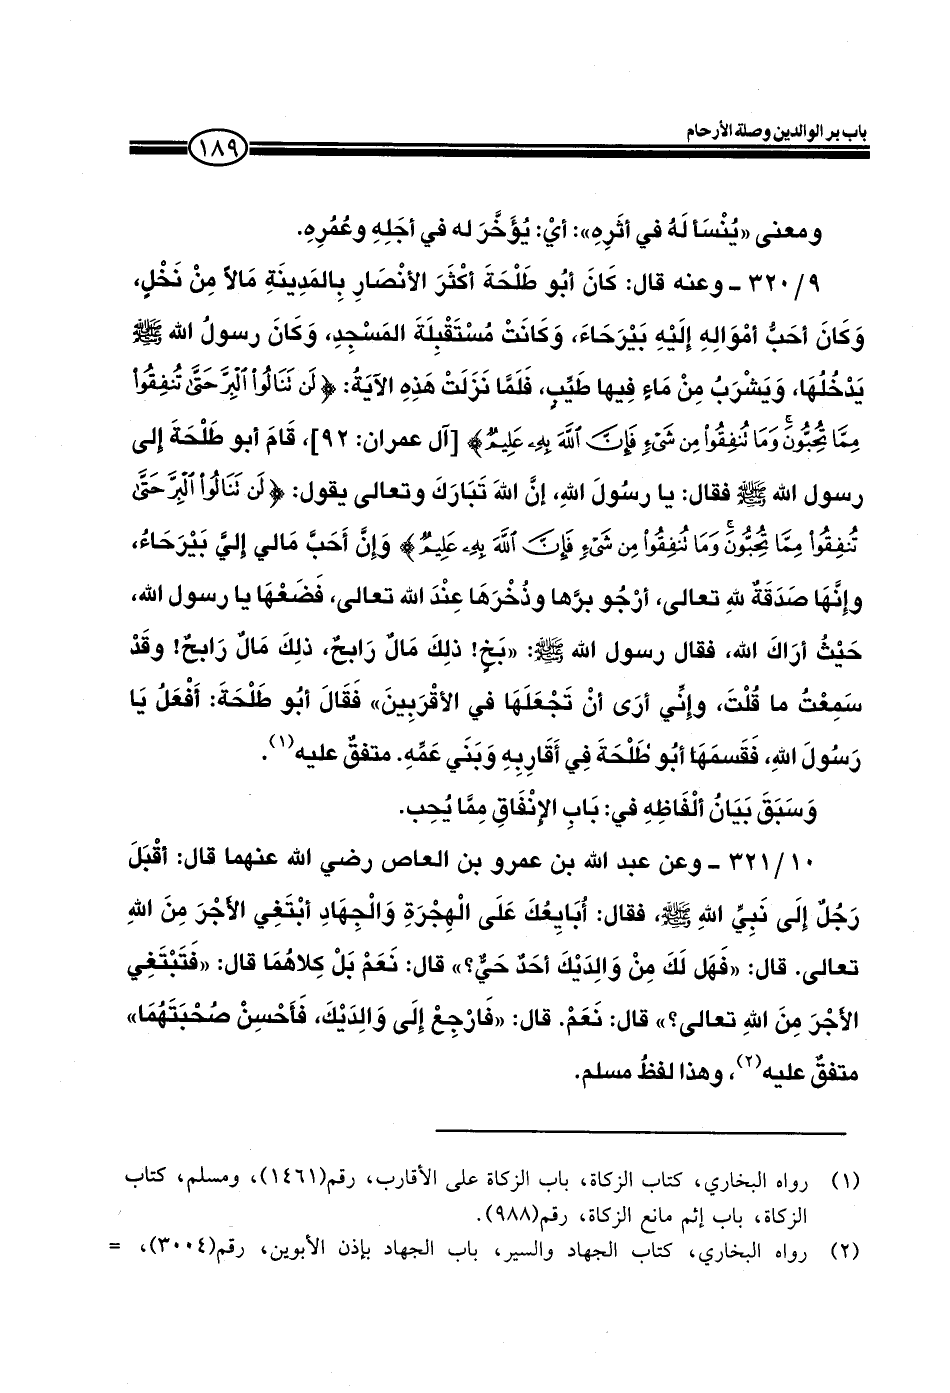 باب بر الوالدين وصلة الأرحام
١٨٩
ومعنى «يُنْسَأ لَهُ في أثَرِهِ»: أيْ: يُؤَخَّرَ له في أجَلِهِ وعُمُرِهِ.
٣٢٠/٩ ـ وعنه قال: كَانَ أبُو طَلْحَةَ أكْثَرَ الأنْصَارِ بِالمَدِينَةِ مَالاً مِنْ نَخْلٍ،
وَكَانَ أحَبُّ أمْوَالِهِ إلَيْهِ بَيْرَحَاءَ، وَكَانَتْ مُسْتَقْبِلَةَ المَسْجِدِ، وَكَانَ رسولُ الله ﷺ
يَدْخُلُهَا، وَيَشْرَبُ مِنْ مَاءٍ فِيها طَيِّبٍ، فَلَمَّا نَزَلَتْ هَذِهِ الآيَةُ: ﴿لَن نَنَالُوا۟ ٱلْبِرَّ حَتَّىٰ تُنفِقُوا۟
مِمَّا تُحِبُّونَۚ وَمَا نُنفِقُوا۟ مِن شَىْءٍ فَإِنَّ ٱللَّهَ بِهِۦ عَلِيمٌ﴾ [آل عمران: ٩٢]، قَامَ أبو طَلْحَةَ إلى
رسول الله ﷺ فقال: يا رسُولَ اللهِ، إنَّ اللهَ تَبَارَكَ وتعالى يقول: ﴿لَن نَنَالُوا۟ ٱلْبِرَّ حَتَّىٰ
تُنفِقُوا۟ مِمَّا تُحِبُّونَۚ وَمَا نُنفِقُوا۟ مِن شَىْءٍ فَإِنَّ ٱللَّهَ بِهِۦ عَلِيمٌ﴾ وَإنَّ أحَبَّ مَالي إليَّ بَيْرَحَاءُ،
وإنَّهَا صَدَقَةٌ للهِ تعالى، أرْجُو برَّها وذُخْرَهَا عِنْدَ الله تعالى، فَضَعْهَا يا رسول الله،
حَيْثُ أرَاكَ الله، فقال رسول الله ﷺ: «بَخٍ! ذلِكَ مَالٌ رَابِحٌ، ذلِكَ مَالٌ رَابحٌ! وقَدْ
سَمِعْتُ ما قُلْتَ، وإنِّي أرَى أنْ تَجْعَلَهَا في الأقْرَبِينَ» فَقَالَ أبُو طَلْحَةَ: أَفْعَلُ يَا
رَسُولَ اللهِ، فَقَسمَهَا أبُو طَلْحَةَ فِي أَقَارِبِهِ وَبَنَي عَمِّهِ. متفقٌ عليه(١).
وَسَبَقَ بَيَانُ ألْفَاظِهِ في: بَابِ الإنْفَاقِ مِمَّا يُحِب.
٣٢١/١٠ ـ وعن عبد الله بن عمرو بن العاص رضي الله عنهما قال: أقْبَلَ
رَجُلٌ إلَى نَبِيِّ اللهِ ﷺ، فقال: أُبَايِعُكَ عَلَى الْهِجْرَةِ وَالْجِهَادِ أبْتَغِي الأجْرَ مِنَ اللهِ
تعالى. قال: «فَهَل لَكَ مِنْ وَالِدَيْكَ أحَدٌ حَيٌّ؟» قال: نَعَمْ بَلْ كِلاهُمَا قال: «فَتَبْتَغِي
الأجْرَ مِنَ اللهِ تعالى؟» قال: نَعَمْ. قال: «فَارْجِعْ إلَى وَالِدَيْكَ، فَأَحْسِنْ صُحْبَتَهُمَا»
متفقٌ عليه(٢)، وهذا لفظُ مسلم.
(١) رواه البخاري، كتاب الزكاة، باب الزكاة على الأقارب، رقم(١٤٦١)، ومسلم، كتاب
الزكاة، باب إثم مانع الزكاة، رقم(٩٨٨).
(٢) رواه البخاري، كتاب الجهاد والسير، باب الجهاد بإذن الأبوين، رقم(٣٠٠٤)، =